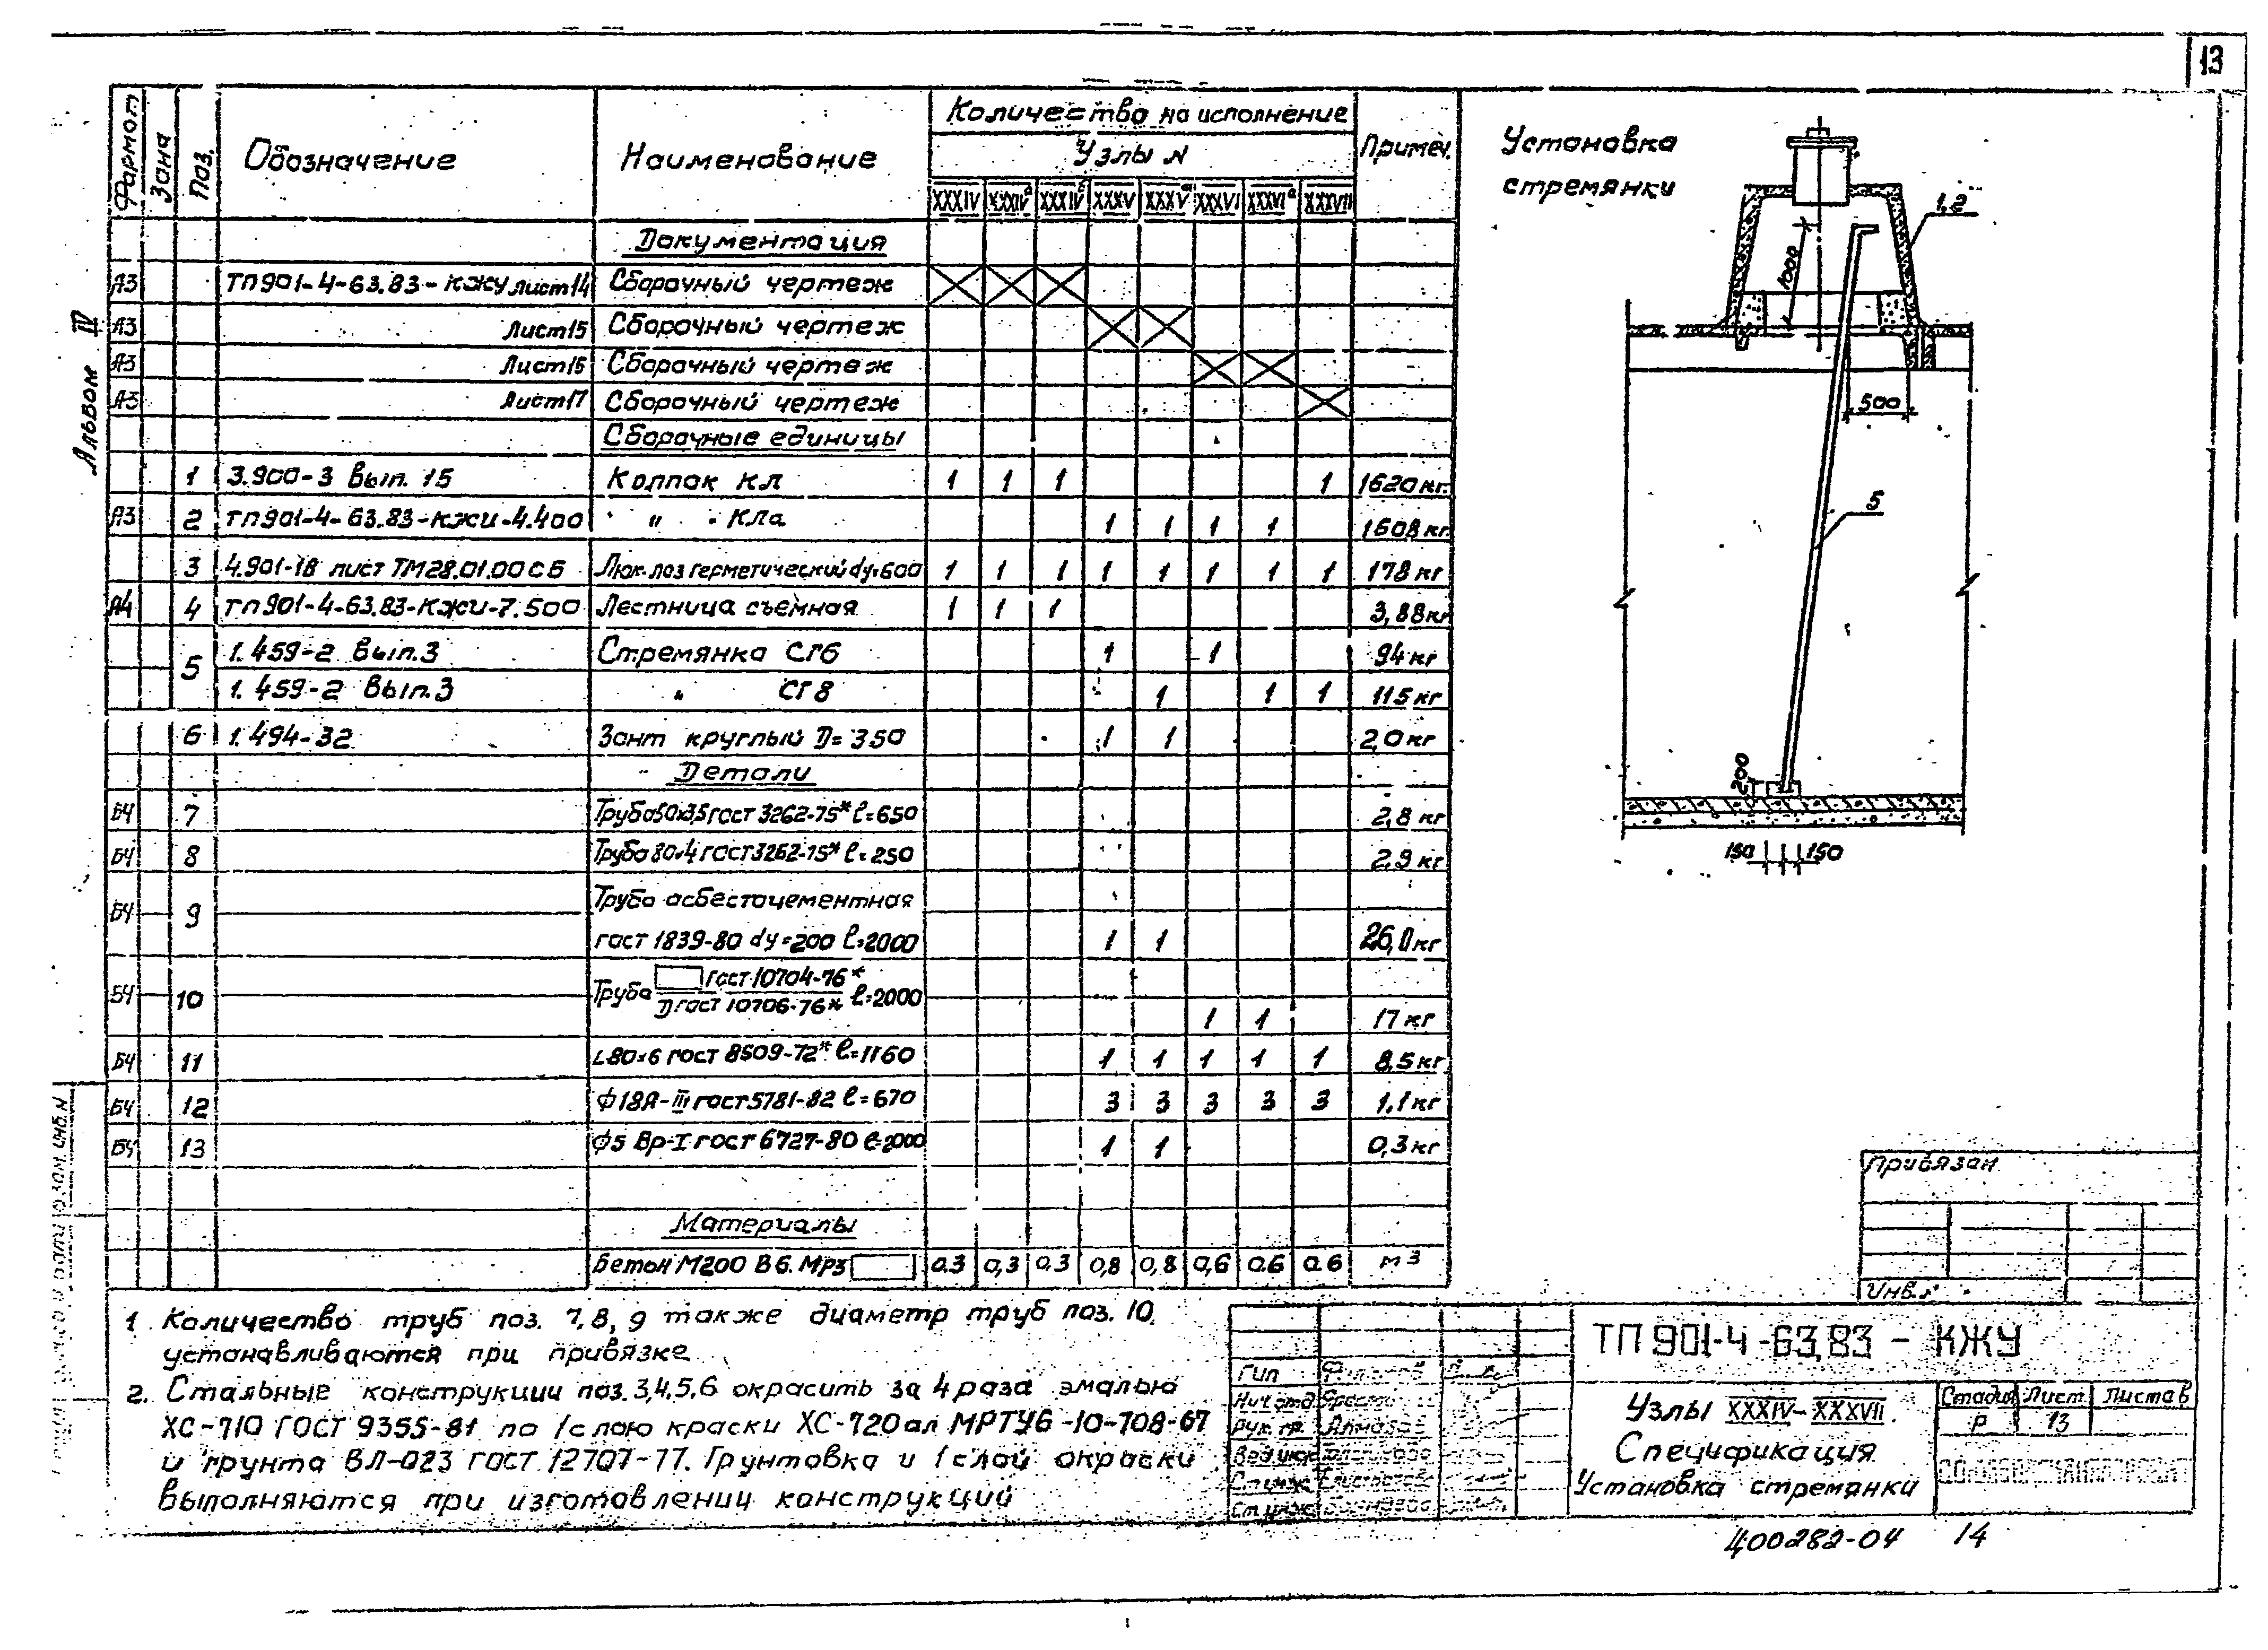 13
Альбом IV
Формат Зона Поз. Обозначение Наименование Количество на исполнение Примеч.
Узлы N
XXXIV XXXIVа XXXIVб XXXV XXXVа XXXVI XXXVIа XXXVII
Документация
А3 ТП901-4-63.83-КЖУ лист14 Сборочный чертеж
А3 Лист15 Сборочный чертеж
А3 Лист16 Сборочный чертеж
А3 Лист17 Сборочный чертеж
Сборочные единицы
1 3.900-3 Вып. 15 Колпак КЛ 1 1 1 1 1620 кг.
А3 2 ТП901-4-63.83-КЖИ-4.400 " " КЛа 1 1 1 1 1608 кг.
3 4.901-18 лист ТМ28.01.00СБ Люк-лаз герметический dу=600 1 1 1 1 1 1 1 1 178 кг
А4 4 ТП901-4-63.83-КЖИ-7.500 Лестница съемная 1 1 1 3,88 кг
5 1.459-2 Вып.3 Стремянка СГ6 1 1 94 кг
1.459-2 Вып.3 " СГ8 1 1 1 115 кг
6 1.494-32 Зонт круглый D=350 1 1 2,0 кг
Детали
БЧ 7 Труба50х3,5 ГОСТ 3262-75* ℓ=650 2,8 кг
БЧ 8 Труба 80х4 ГОСТ3262-75* ℓ=250 2,9 кг
БЧ 9 Труба асбестоцементная
ГОСТ 1839-80 dу=200 ℓ=2000 1 1 26,0 кг
БЧ 10 Труба ГОСТ 10704-76* / D ГОСТ 10706-76* ℓ=2000 1 1 17 кг
БЧ 11 L80×6 ГОСТ 8509-72* ℓ=1160 1 1 1 1 1 8,5 кг
БЧ 12 Ф18А-III ГОСТ5781-82 ℓ=670 3 3 3 3 3 1,1 кг
БЧ 13 Ф5 Вр-I ГОСТ 6727-80 ℓ=2000 1 1 0,3 кг
Материалы
Бетон М200 В6. Мрз 0.3 0,3 0.3 0,8 0,8 0,6 0.6 0.6 м3
1 Количество труб поз. 7,8, 9 также диаметр труб поз. 10.
устанавливаются при привязке
2. Стальные конструкции поз. 3,4,5,6 окрасить за 4 раза эмалью
ХС-710 ГОСТ 9355-81 по 1 слою краски ХС-720ал МРТУ6-10-708-67
и грунта ВЛ-023 ГОСТ 12707-77. Грунтовка и 1 слой окраски
выполняются при изготовлении конструкций
Установка
стремянки
1,2
1000
500
5
200
150 150
Привязан
Инв.
ТП 901-4-63.83 - КЖУ
Гип
Нач.отд
Рук. гр.
Вед.инж
Ст.инж
Ст.инж
Узлы XXXIV-XXXVII.
Спецификация
Установка стремянки
Стадия Лист Листов
Р 13
Ц00282-04 14